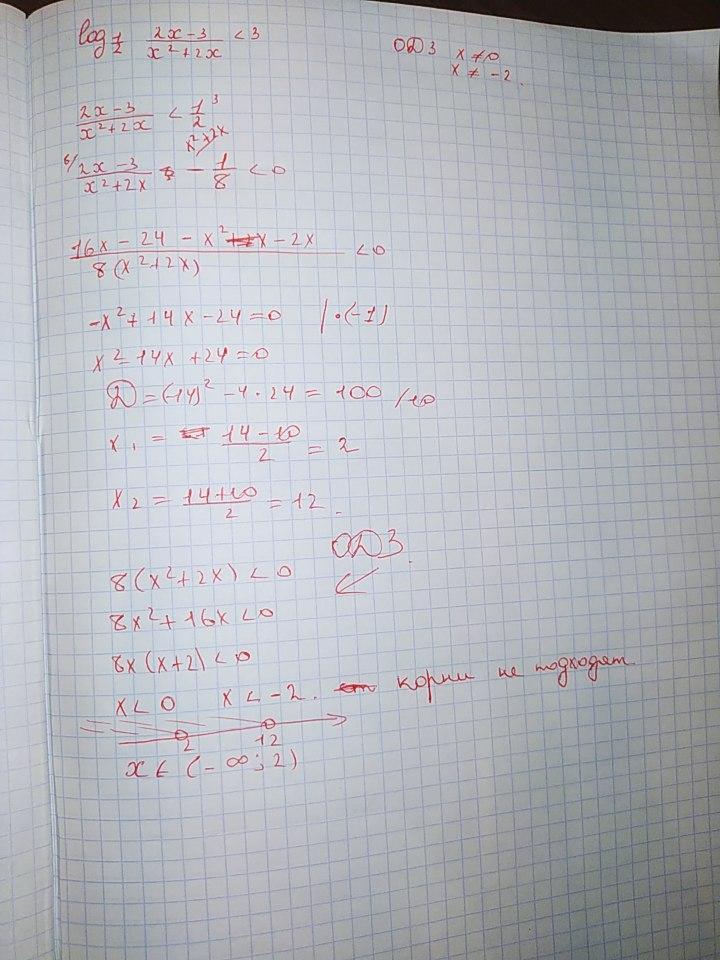 log 1/2 (2x-3)/(x²+2x) < 3
ОДЗ x ≠ 0
x ≠ -2.
(2x-3)/(x²+2x) < 1/2 ³
x²+2x
8/ (2x-3)/(x²+2x) - 1/8 < 0
(16x - 24 - x² - 2x)/(8(x²+2x)) < 0
-x² + 14x - 24 = 0 | · (-1)
x² - 14x + 24 = 0
D = (-14)² - 4 · 24 = 100 /10
x₁ = (14-10)/2 = 2
x₂ = (14+10)/2 = 12.
ОДЗ.
8(x²+2x) < 0
8x² + 16x < 0
8x(x+2) < 0
x < 0 x < -2. корни не подходят
2 12
x ∈ (-∞; 2)